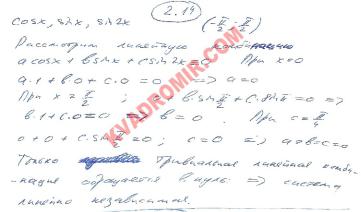 2.19
cosx, sinx, sin2x (-π/2; π/2)
Рассмотрим линейную комбинацию
acosx + bsinx + csin2x = 0 При x=0
a·1 + b·0 + c·0 = 0 => a=0
При x = π/2 ; 0 + b·sin π/2 + c·sin π = 0 =>
b·1 + c·0 = 0 => b = 0. При x = π/4
0 + 0 + c·sin π/2 = 0 ; c = 0 => a=b=c=0
Только тривиальная линейная комби-
нация обращается в нуль => система
линейно независима.
KVADROMIR.COM